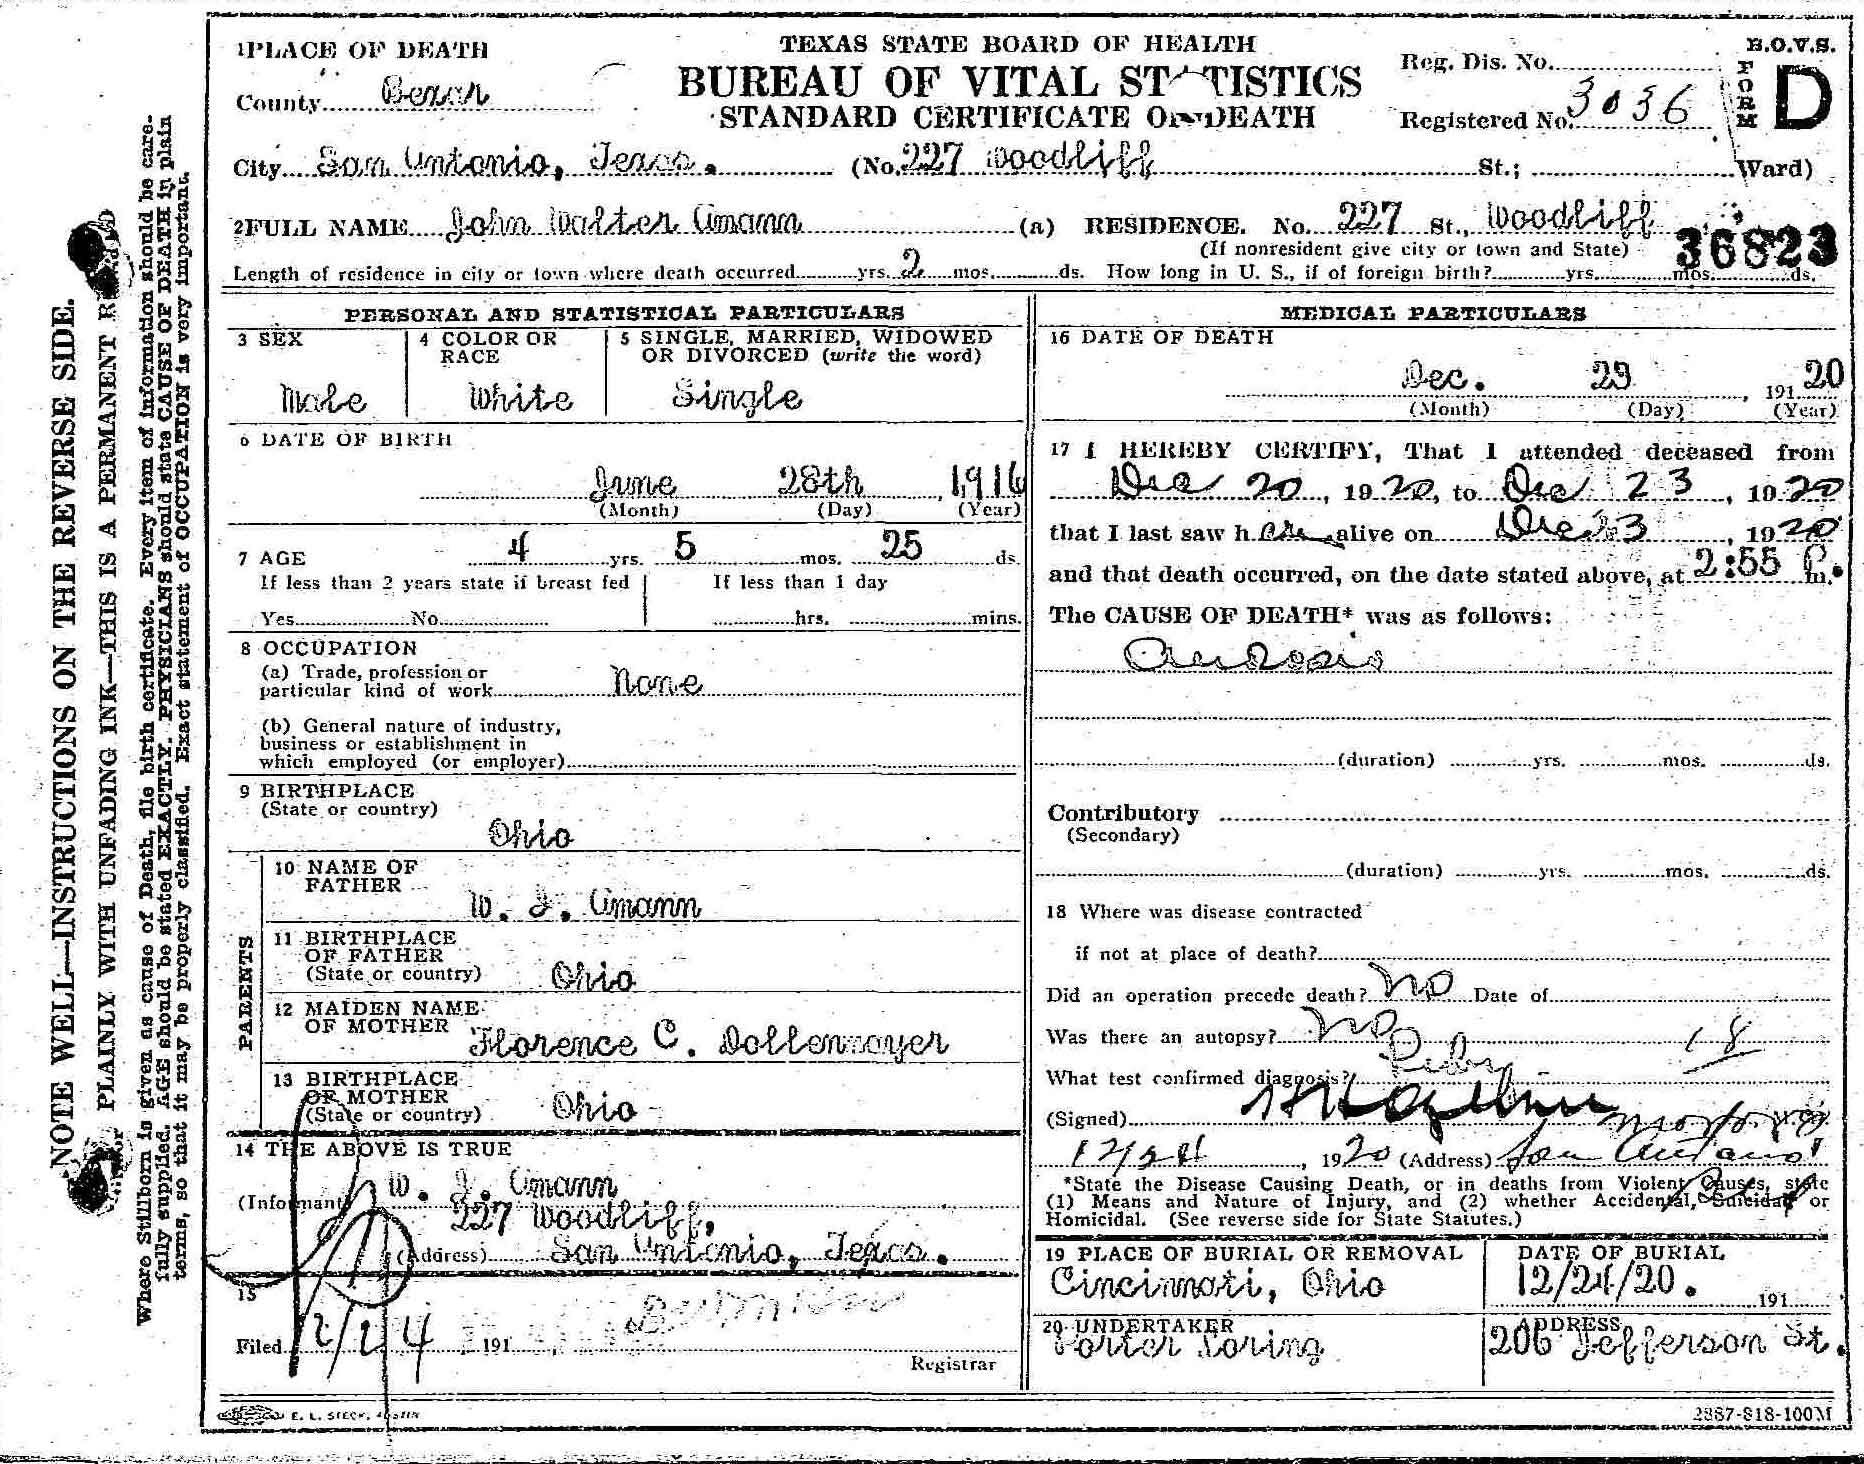 1 PLACE OF DEATH
TEXAS STATE BOARD OF HEALTH
BUREAU OF VITAL STATISTICS
STANDARD CERTIFICATE OF DEATH
B.O.V.S.
FORM D
Reg. Dis. No.
County Bexar
Registered No. 3036
City San Antonio, Texas. (No. 227 Woodliff St.; Ward)
2 FULL NAME John Walter Amann (a) RESIDENCE. No. 227 St., Woodliff
(If nonresident give city or town and State)
36823
Length of residence in city or town where death occurred yrs. 2 mos. ds. How long in U. S., if of foreign birth? yrs. mos. ds.
PERSONAL AND STATISTICAL PARTICULARS
3 SEX
Male
4 COLOR OR RACE
White
5 SINGLE, MARRIED, WIDOWED
OR DIVORCED (write the word)
Single
6 DATE OF BIRTH
June 28th, 1916
(Month) (Day) (Year)
7 AGE 4 yrs. 5 mos. 25 ds.
If less than 2 years state if breast fed
Yes No
If less than 1 day
hrs. mins.
8 OCCUPATION
(a) Trade, profession or
particular kind of work None
(b) General nature of industry,
business or establishment in
which employed (or employer)
9 BIRTHPLACE
(State or country)
Ohio
PARENTS
10 NAME OF
FATHER
W. J. Amann
11 BIRTHPLACE
OF FATHER
(State or country) Ohio
12 MAIDEN NAME
OF MOTHER
Florence C. Dollenmayer
13 BIRTHPLACE
OF MOTHER
(State or country) Ohio
14 THE ABOVE IS TRUE
(Informant) W. J. Amann
227 Woodliff,
(Address) San Antonio, Texas.
15
Filed 12/24 191
Registrar
MEDICAL PARTICULARS
16 DATE OF DEATH
Dec. 23, 191 20
(Month) (Day) (Year)
17 I HEREBY CERTIFY, That I attended deceased from
Dec 20, 1920, to Dec 23, 1920
that I last saw h alive on Dec 23, 1920
and that death occurred, on the date stated above, at 2:55 P. m.
The CAUSE OF DEATH* was as follows:
(duration) yrs. mos. ds.
Contributory
(Secondary)
(duration) yrs. mos. ds.
18 Where was disease contracted
if not at place of death?
Did an operation precede death? No Date of
Was there an autopsy? No
18
What test confirmed diagnosis?
(Signed)
12/24, 1920 (Address) San Antonio
*State the Disease Causing Death, or in deaths from Violent Causes, state
(1) Means and Nature of Injury, and (2) whether Accidental, Suicidal or
Homicidal. (See reverse side for State Statutes.)
19 PLACE OF BURIAL OR REMOVAL
Cincinnati, Ohio
DATE OF BURIAL
12/24/20. 191
20 UNDERTAKER
Porter Loring
ADDRESS
206 Jefferson St.
E. L. STECK, AUSTIN
2887-818-100M
NOTE WELL—INSTRUCTIONS ON THE REVERSE SIDE.
PLAINLY WITH UNFADING INK—THIS IS A PERMANENT
Where Stillborn is given as cause of Death, file birth certificate. Every item of information should be care-
fully supplied. AGE should be stated EXACTLY. PHYSICIANS should state CAUSE OF DEATH in plain
terms, so that it may be properly classified. Exact statement of OCCUPATION is very important.